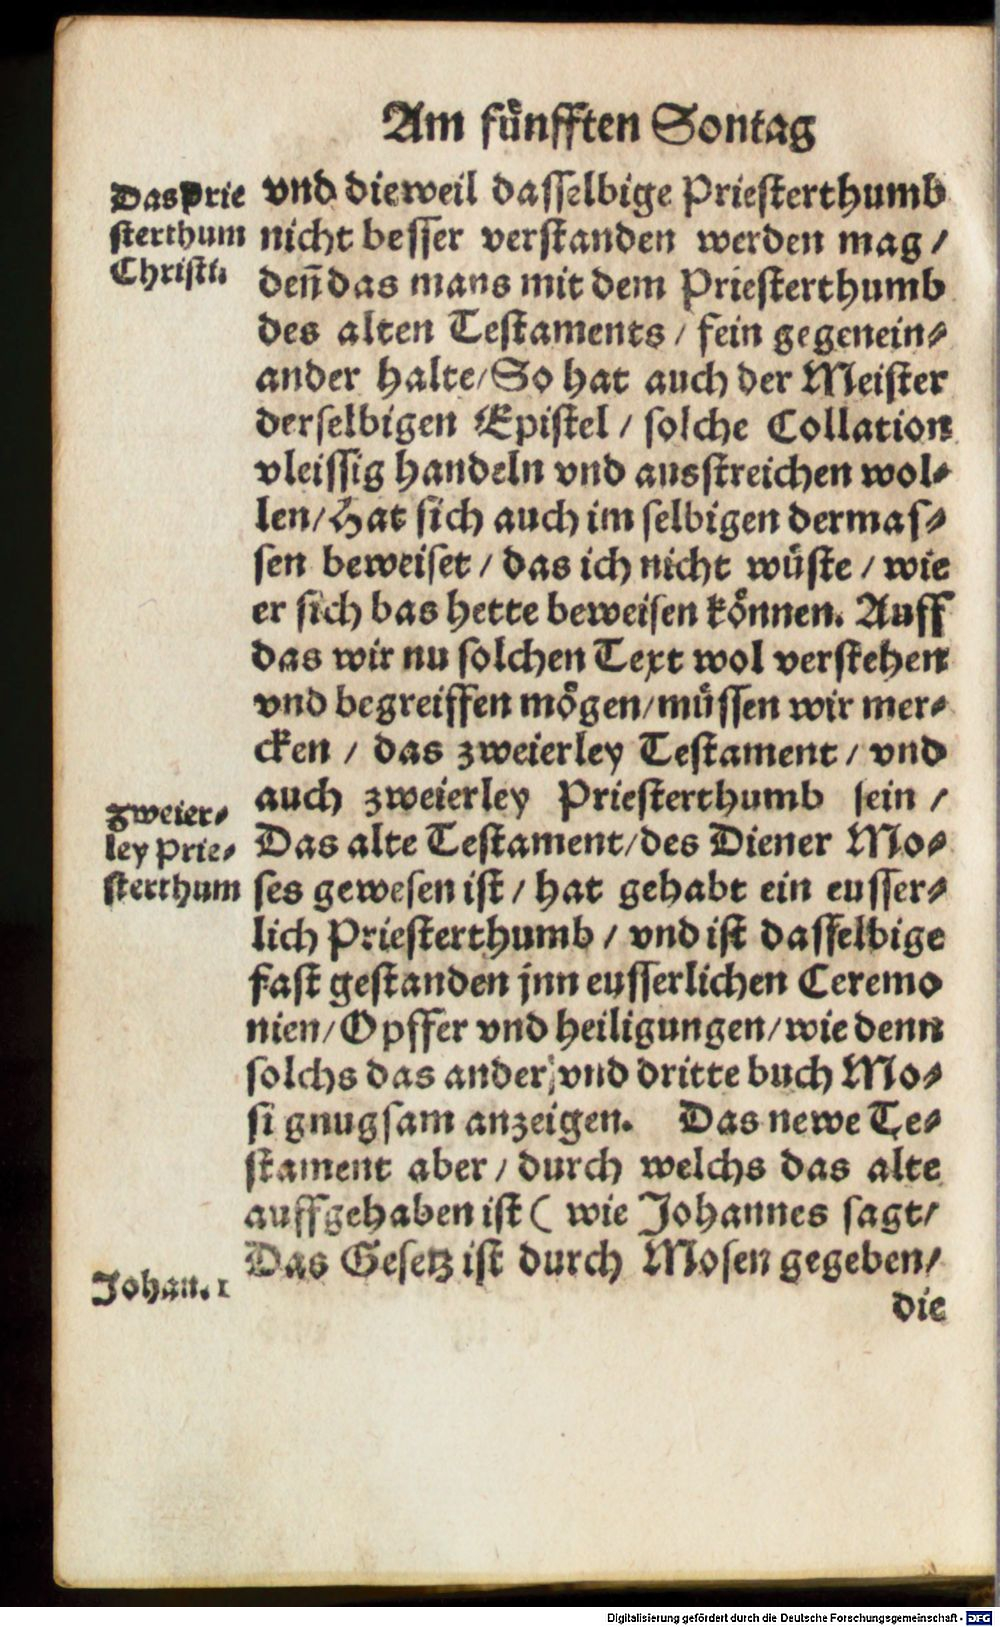 Am fuͤnfften Sontag
Das Prie
sterthum
Christi.
vnd dieweil dasselbige Priesterthumb
nicht besser verstanden werden mag /
deñ das mans mit dem Priesterthumb
des alten Testaments / fein gegenein⸗
ander halte / So hat auch der Meister
derselbigen Epistel / solche Collation
vleissig handeln vnd ausstreichen wol⸗
len / Hat sich auch im selbigen dermas⸗
sen beweiset / das ich nicht wuͤste / wie
er sich bas hette beweisen koͤnnen. Auff
das wir nu solchen Text wol verstehen
vnd begreiffen moͤgen / muͤssen wir mer⸗
cken / das zweierley Testament / vnd
auch zweierley Priesterthumb sein /
zweier⸗
ley Prie⸗
sterthum
Das alte Testament / des Diener Mo⸗
ses gewesen ist / hat gehabt ein eusser⸗
lich Priesterthumb / vnd ist dasselbige
fast gestanden jnn eusserlichen Ceremo
nien / Opffer vnd heiligungen / wie denn
solchs das ander / vnd dritte buch Mo⸗
si gnugsam anzeigen. Das newe Te⸗
stament aber / durch welchs das alte
auffgehaben ist ( wie Johannes sagt /
Das Gesetz ist durch Mosen gegeben /
Johan. 1
die
Digitalisierung gefördert durch die Deutsche Forschungsgemeinschaft - DFG